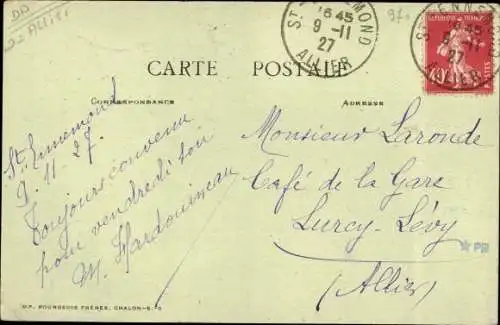 ST ENNEMOND
16 45
9 - 11
27
ALLIER
ST ENNEMOND
16 45
9 - 11
27
ALLIER
CARTE POSTALE
CORRESPONDANCE
ADRESSE
St Ennemond
9.11-27.
Toujours convenu
pour vendredi soir
M. Hardouineau
Monsieur Laronde
Café de la Gare
Lurcy-Lévy
(Allier)
PH
B.F. BOURGEOIS FRÈRES, CHALON-S-S